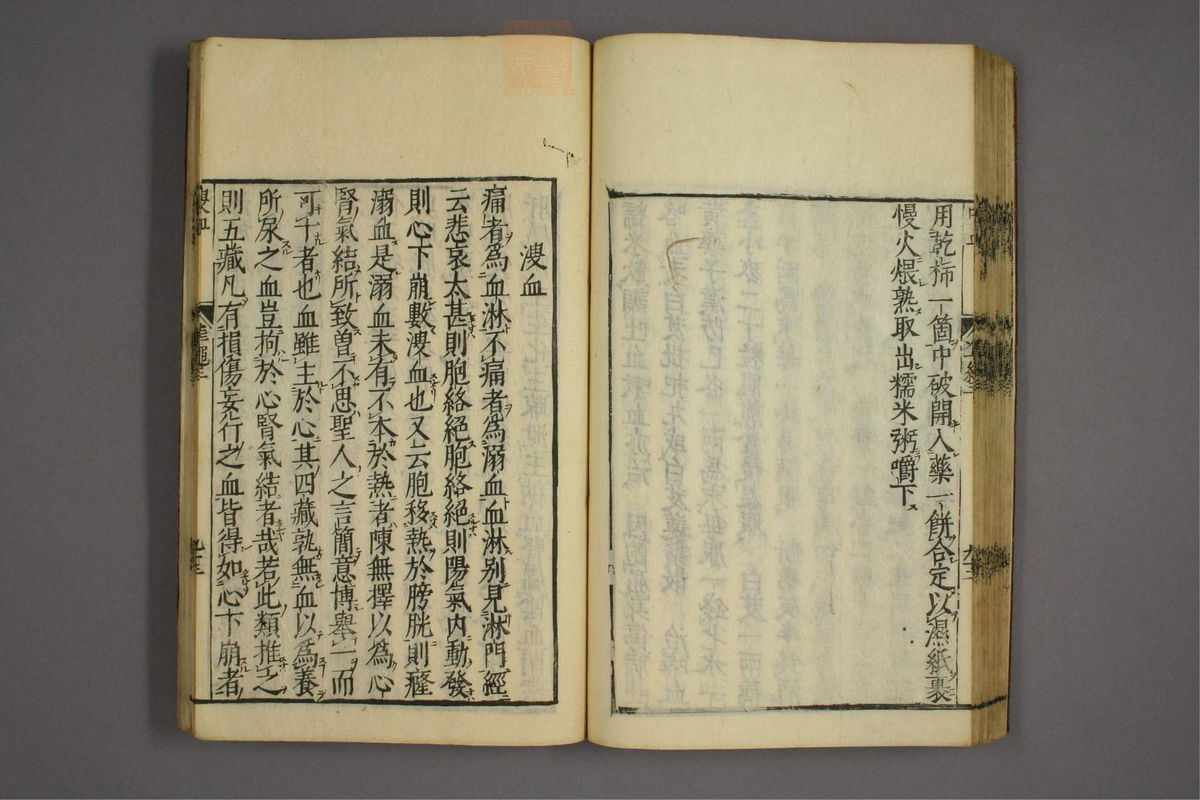 用乾柿一箇中破開入藥一餅合定以濕紙裹
慢火煨熟取出糯米粥嚼下
溲血
痛者爲血淋不痛者為溺血血淋别見淋門經
云悲哀太甚則胞絡絕胞絡絕則陽氣内動發
則心下崩數溲血也又云胞移熱於膀胱則癃
溺血是溺血未有不本於熱者陳無擇以爲心
腎氣結所致曽不思聖人之言簡意博舉一而
可千者也血雖主於心其四藏孰無血以爲養
所尿之血豈拘於心腎氣結者哉若此類推之
則五藏凡有損傷妄行之血皆得如心下崩者